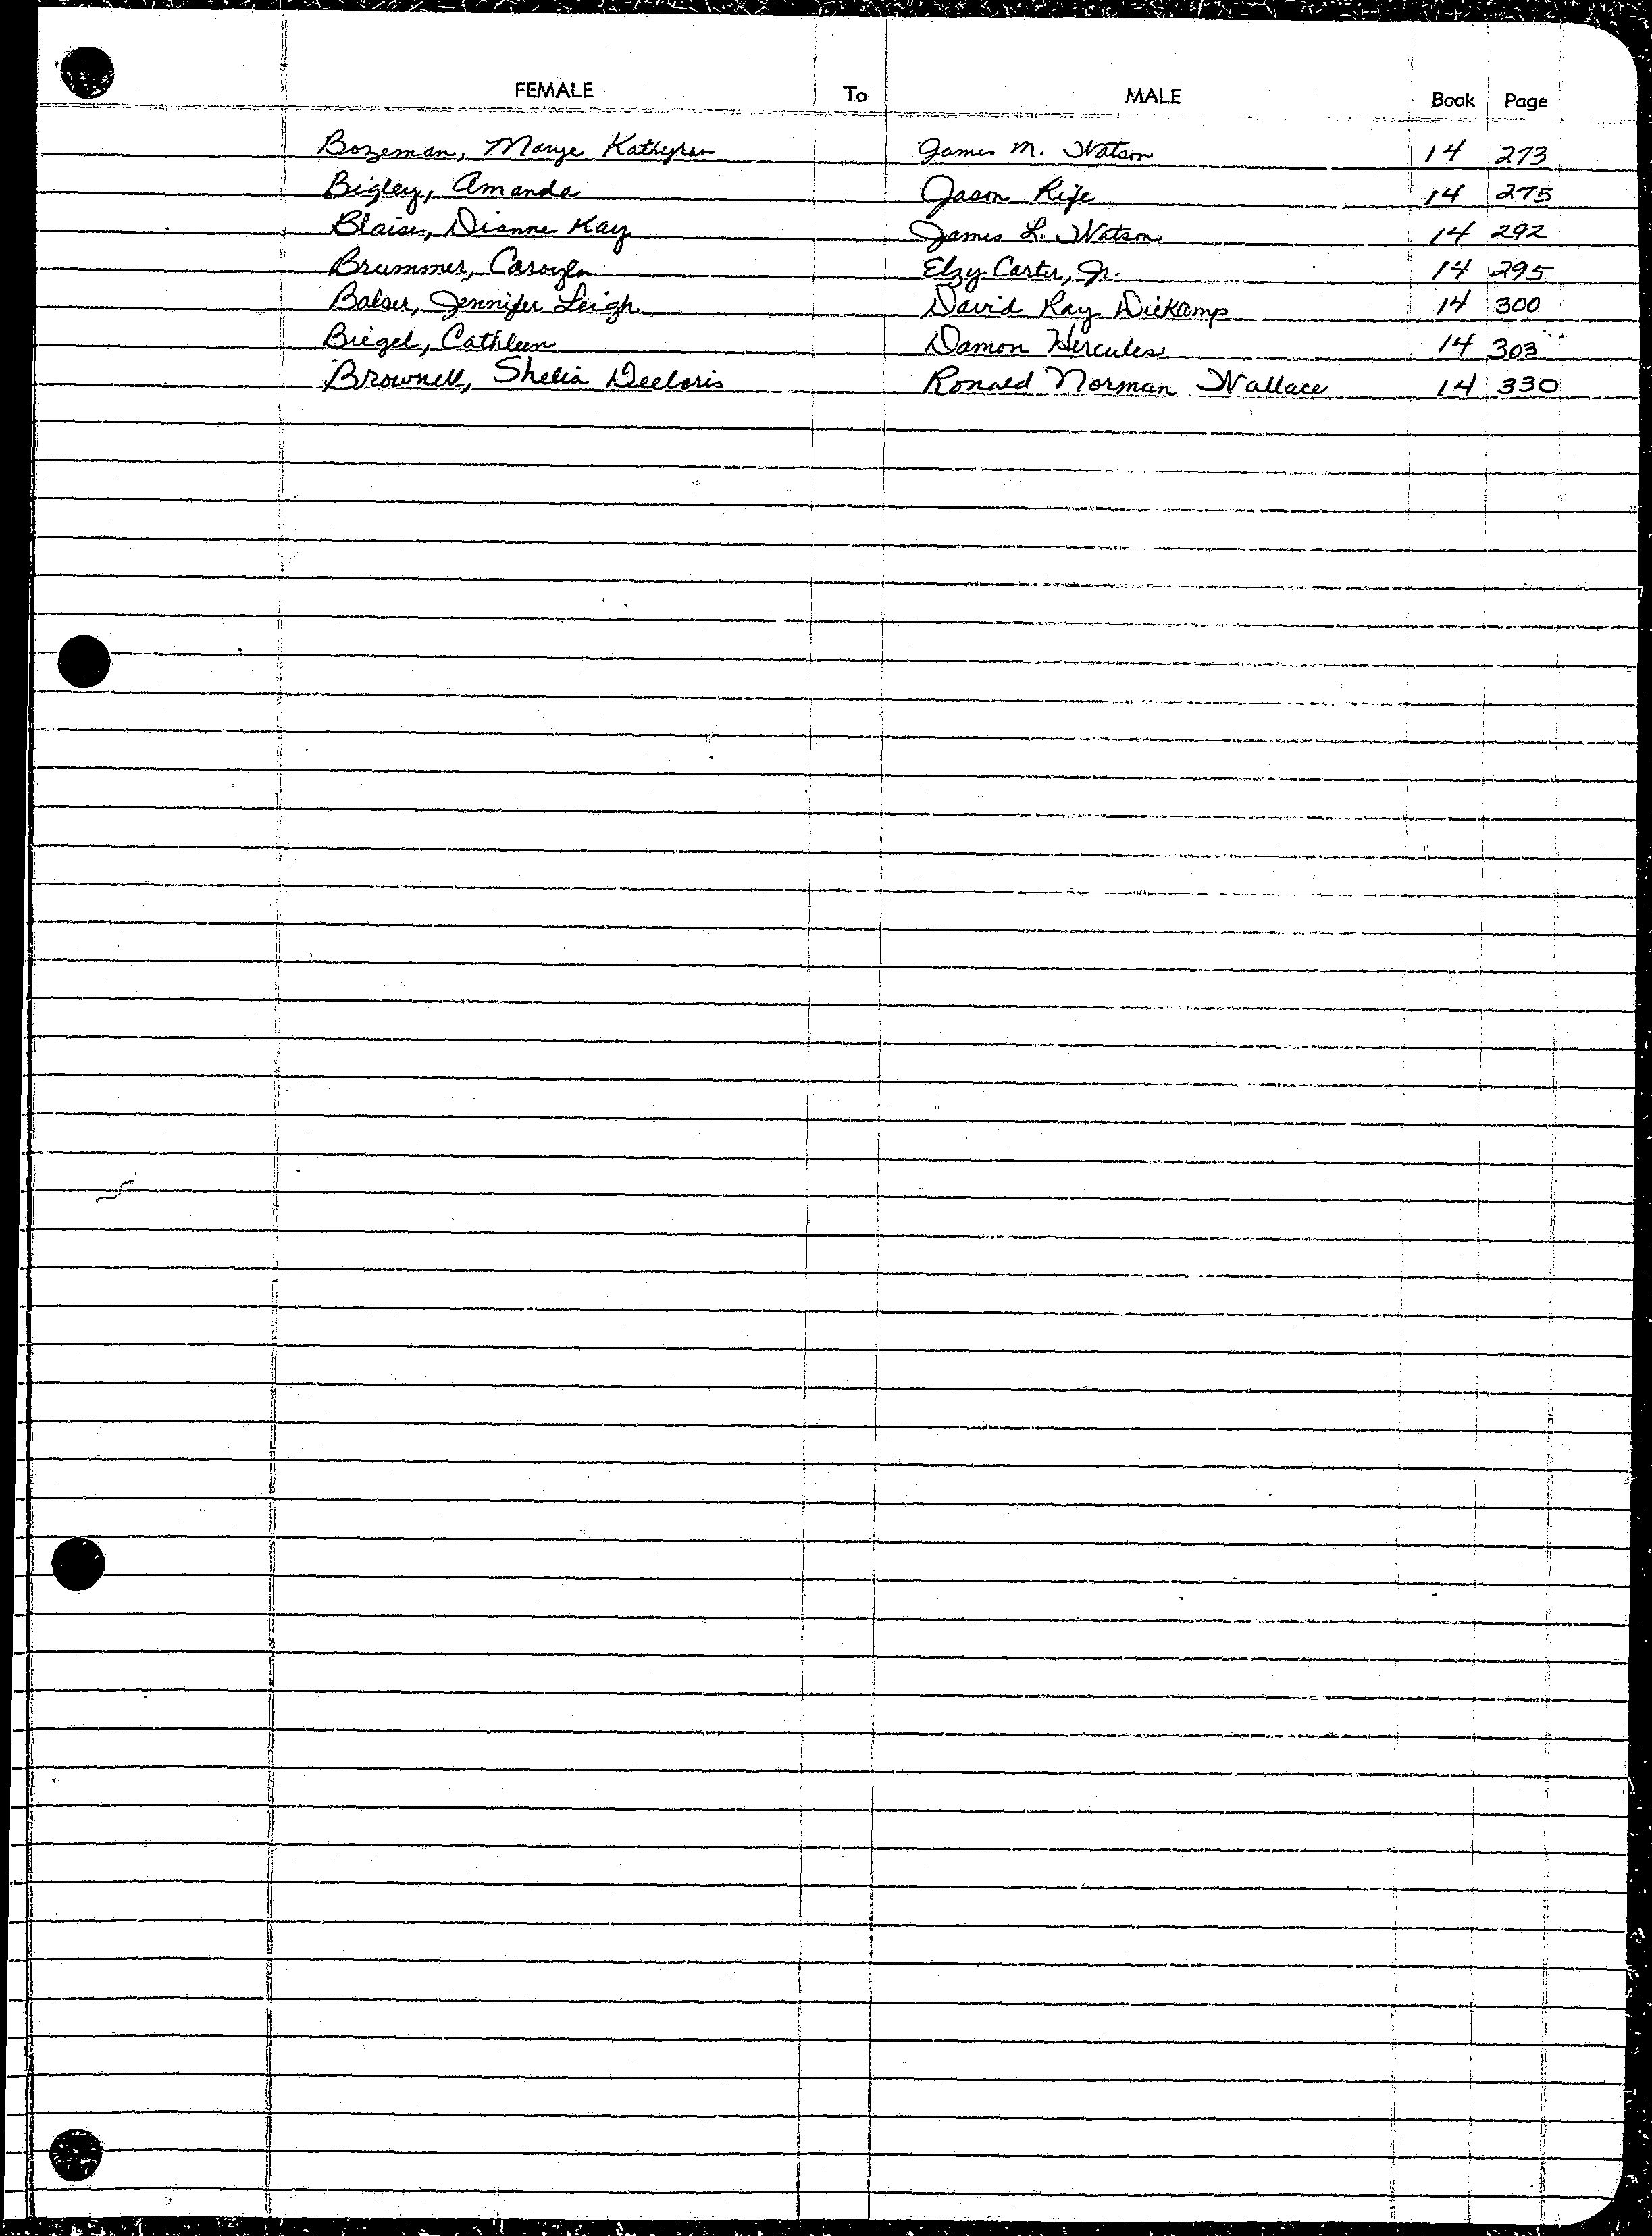 FEMALE To MALE Book Page
Bozeman, Marye Kathyran James M. Watson 14 273
Bigley, Amanda Jason Rife 14 275
Blaise, Dianne Kay James L. Watson 14 292
Brummer, Caroyln Elzy Carter, Jr. 14 295
Balser, Jennifer Leigh David Ray Diekamp 14 300
Biegel, Cathleen Damon Hercules 14 303
Brownell, Shelia Deeloris Ronald Norman Wallace 14 330